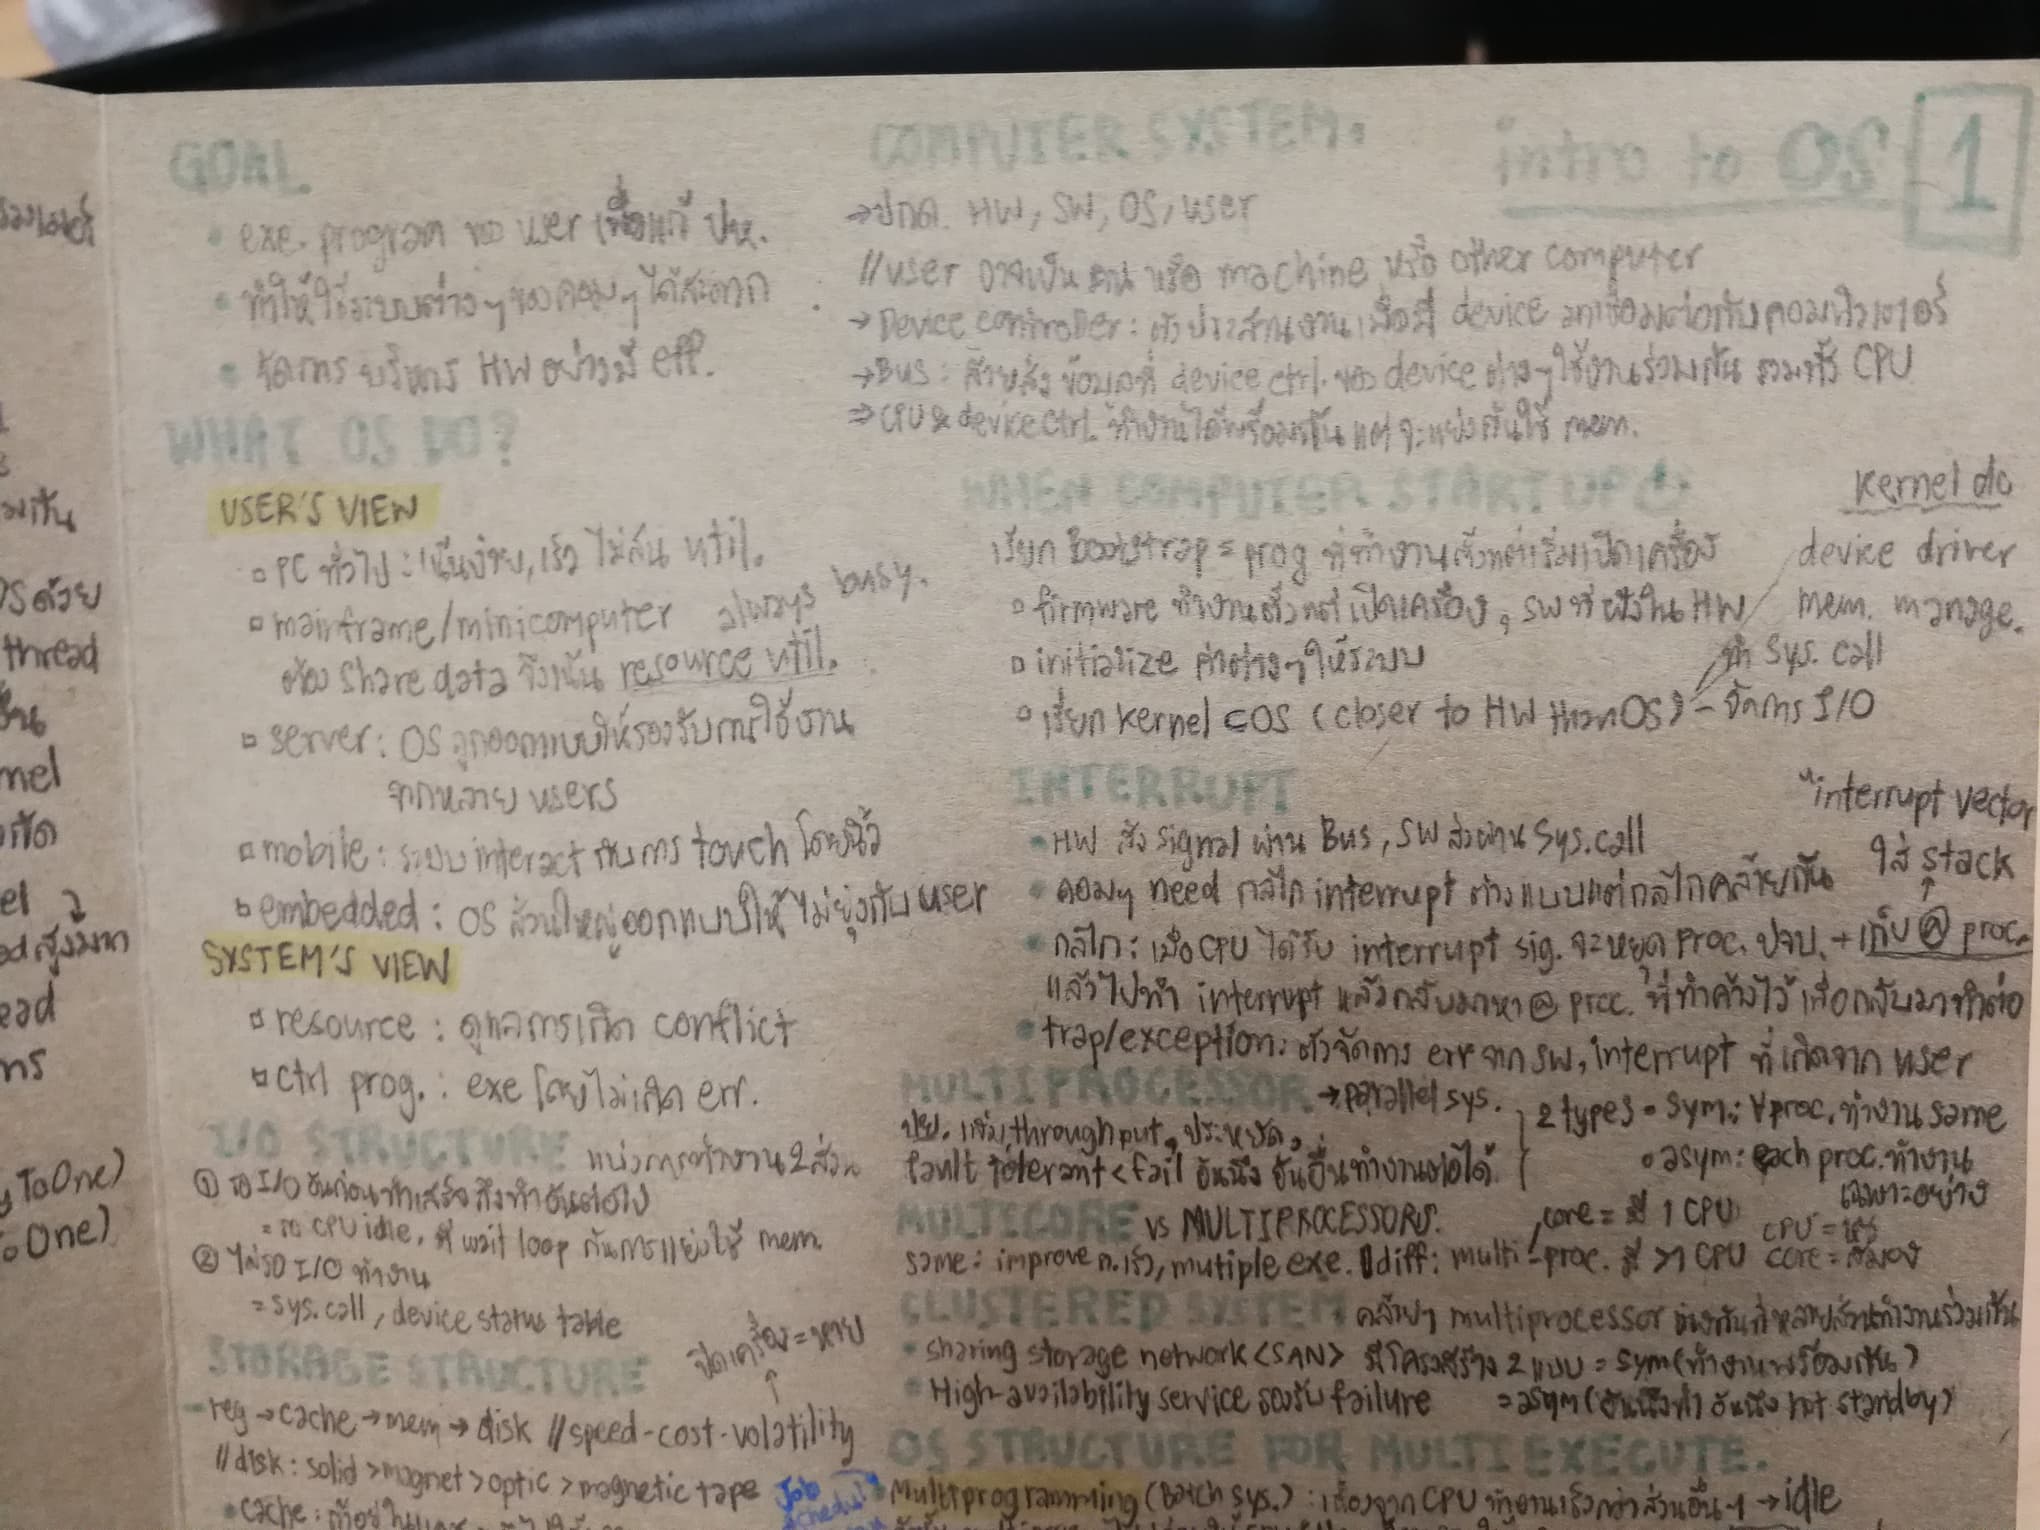 intro to OS 1
GOAL
• exe. program ของ user เพื่อแก้ ปห.
• ทำให้ใช้ระบบต่างๆของคอมๆได้สะดวก
• จัดการ บริหาร HW อย่างมี eff.
WHAT OS DO?
USER'S VIEW
▫ PC ทั่วไป : เน้นง่าย, เร็ว ไม่สน util.
▫ mainframe/minicomputer always busy.
ต้อง share data จึงเน้น resource util.
▫ server : OS ถูกออกแบบให้รองรับการใช้งาน
จากหลาย users
▫ mobile : ระบบ interact กับการ touch โดยนิ้ว
▫ embedded : OS ส่วนใหญ่ออกแบบให้ไม่ยุ่งกับ user
SYSTEM'S VIEW
▫ resource : ดูแลการเกิด conflict
▫ ctrl prog. : exe โดยไม่เกิด err.
I/O STRUCTURE แบ่งการทำงาน 2 ส่วน
① รอ I/O อันก่อนทำเสร็จ ถึงทำอันต่อไป
= รอ CPU idle, มี wait loop กันการแย่งใช้ mem.
② ไม่รอ I/O ทำงาน
= sys.call, device status table
STORAGE STRUCTURE ปิดเครื่อง = หาย
- reg → cache → mem → disk // speed-cost-volatility
// disk : solid > magnet > optic > magnetic tape
• cache :
COMPUTER SYSTEM:
→ ปกต. HW, SW, OS, user
// user อาจเป็น คน หรือ machine หรือ other computer
→ Device controller : ตัวประสานงานเมื่อมี device มาเชื่อมต่อกับคอมพิวเตอร์
→ Bus : สายส่งข้อมูลที่ device ctrl. ของ device ต่างๆใช้งานร่วมกัน รวมทั้ง CPU
⇒ CPU & device ctrl. ทำงานได้พร้อมกัน แต่ จะแย่งกันใช้ mem.
WHEN COMPUTER START UP
เรียก bootstrap = prog ที่ทำงานตั้งแต่เริ่มเปิดเครื่อง
▫ firmware ทำงานตั้งแต่เปิดเครื่อง, SW ที่ฝังใน HW
▫ initialize ค่าต่างๆให้ระบบ
▫ เรียก kernel ⊂ OS (closer to HW than OS)
kernel do
device driver
mem. manage.
ทำ sys. call
- จัดการ I/O
INTERRUPT
• HW ส่ง signal ผ่าน Bus, SW ส่งผ่าน sys.call
• คอมๆ need กลไก interrupt ต่างแบบแต่กลไกคล้ายกัน
• กลไก : เมื่อ CPU ได้รับ interrupt sig. จะหยุด proc. ปจบ. + เก็บ @ proc.
แล้วไปทำ interrupt แล้วกลับมาหา @ proc. ที่ทำค้างไว้ เพื่อกลับมาทำต่อ
*interrupt vector
ใส่ stack
• trap/exception : ตัวจัดการ err จาก SW, interrupt ที่เกิดจาก user
MULTIPROCESSOR → parallel sys.
ปย. เพิ่ม throughput, ประหยัด,
fault tolerant < fail อันนึง อันอื่นทำงานต่อได้
2 types • sym : ∀proc. ทำงาน same
• asym : each proc. ทำงาน
เฉพาะอย่าง
MULTICORE vs MULTIPROCESSORS.
core = มี 1 CPU
same : improve ค.เร็ว, mutiple exe. diff : multi-proc. มี >1 CPU
CPU =
core = สมอง
CLUSTERED SYSTEM คล้ายๆ multiprocessor
• sharing storage network <SAN> มีโครงสร้าง 2 แบบ = sym (ทำงานพร้อมกัน)
• High-availability service รองรับ failure = asym (อันนึงทำ อันนึง hot standby)
OS STRUCTURE FOR MULTI EXECUTE.
Job
Multiprogramming (Batch sys.) : เนื่องจาก CPU ทำงานเร็วกว่าส่วนอื่นๆ → idle